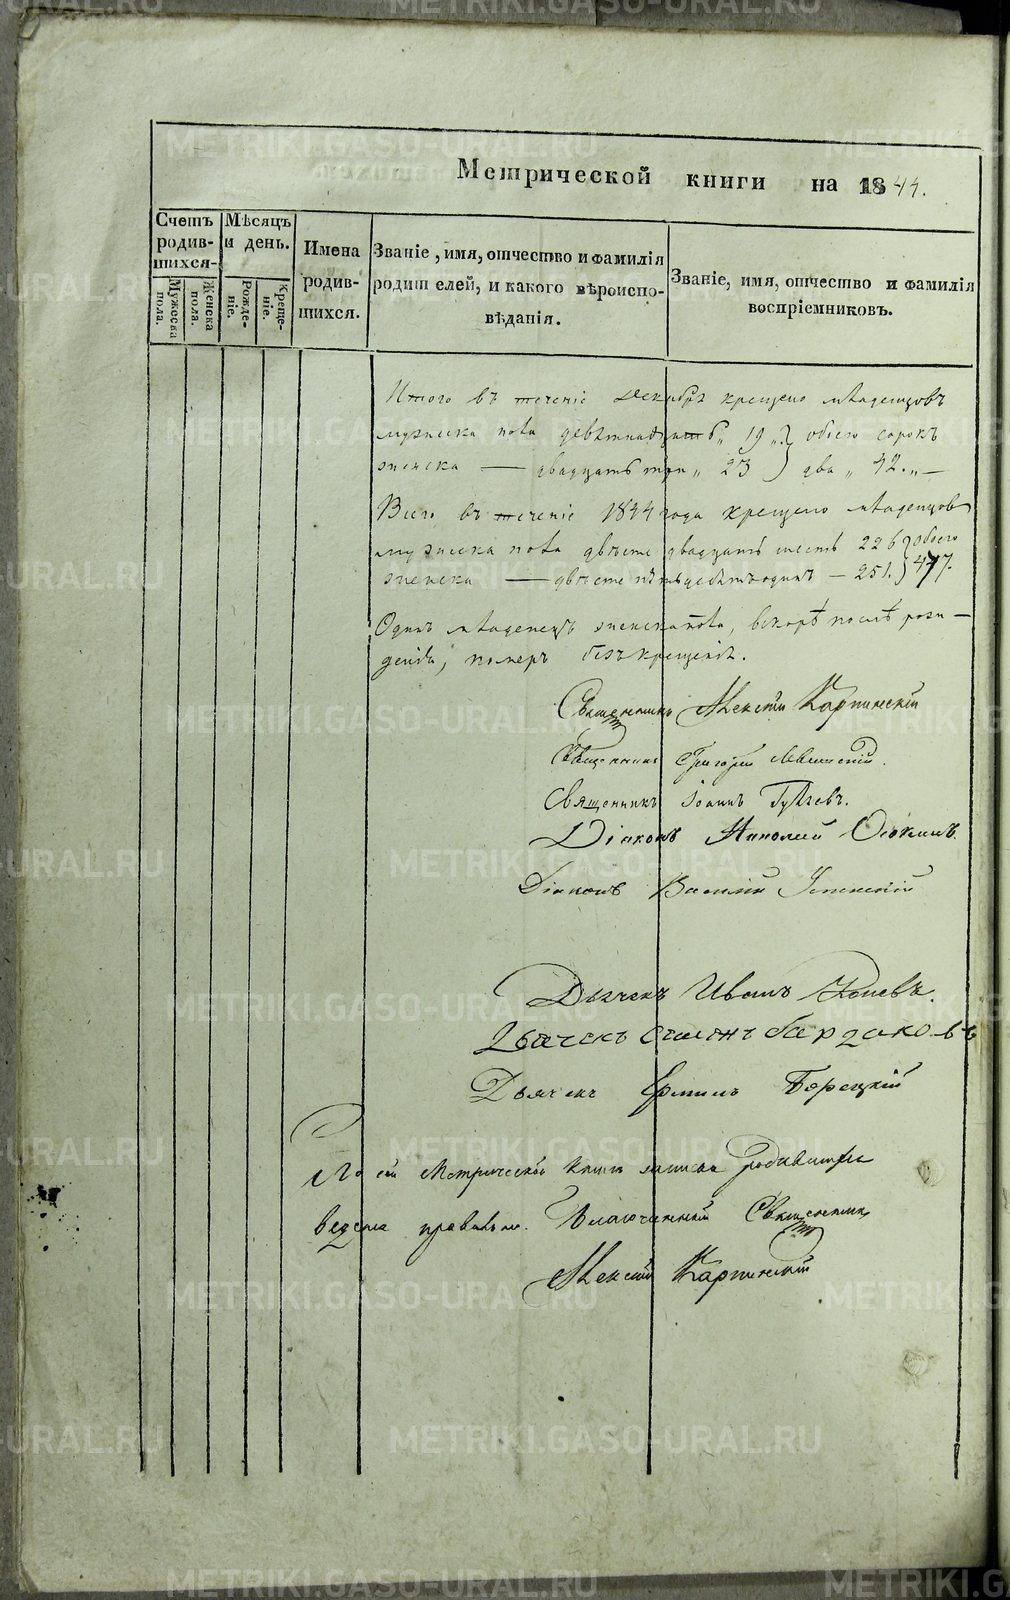 METRIKI.GASO-URAL.RU
Метрической книги на 1844.
Счетъ родив-шихся.
Мѣсяцъ и день.
Мужеска пола.
Женска пола.
Рожде-ніе.
Креще-ніе.
Имена родив-шихся.
Званіе, имя, отчество и фамилія
родителей, и какого вѣроиспо-
вѣданія.
Званіе, имя, отчество и фамилія
воспріемниковъ.
Итого въ теченіе декабря крещено младенцовъ
мужеска пола девятнадцать „ 19 „ } обоего сорокъ
женска — двадцать три „ 23 } два „ 42. „ —
Всего въ теченіе 1844 года крещено младенцовъ
мужеска пола двѣсте двадцать шесть 226 } обоего
женска — двѣсте пятьдесятъ одинъ — 251. } 477.
Одинъ младенецъ женска пола, вскорѣ послѣ рож-
денія, померъ безъ крещенія.
Священникъ Алексій Карпинскій
Священникъ Григорій
Священникъ Іоаннъ
Діаконъ
Діаконъ Василій Успенскій
Дьячекъ Иванъ
Дьячекъ Бардаковъ
Дьячекъ Ермилъ Борецкій
По сей Метрической книгѣ записка родившихся
ведена правильно. Благочинный Священникъ
Алексій Карпинскій